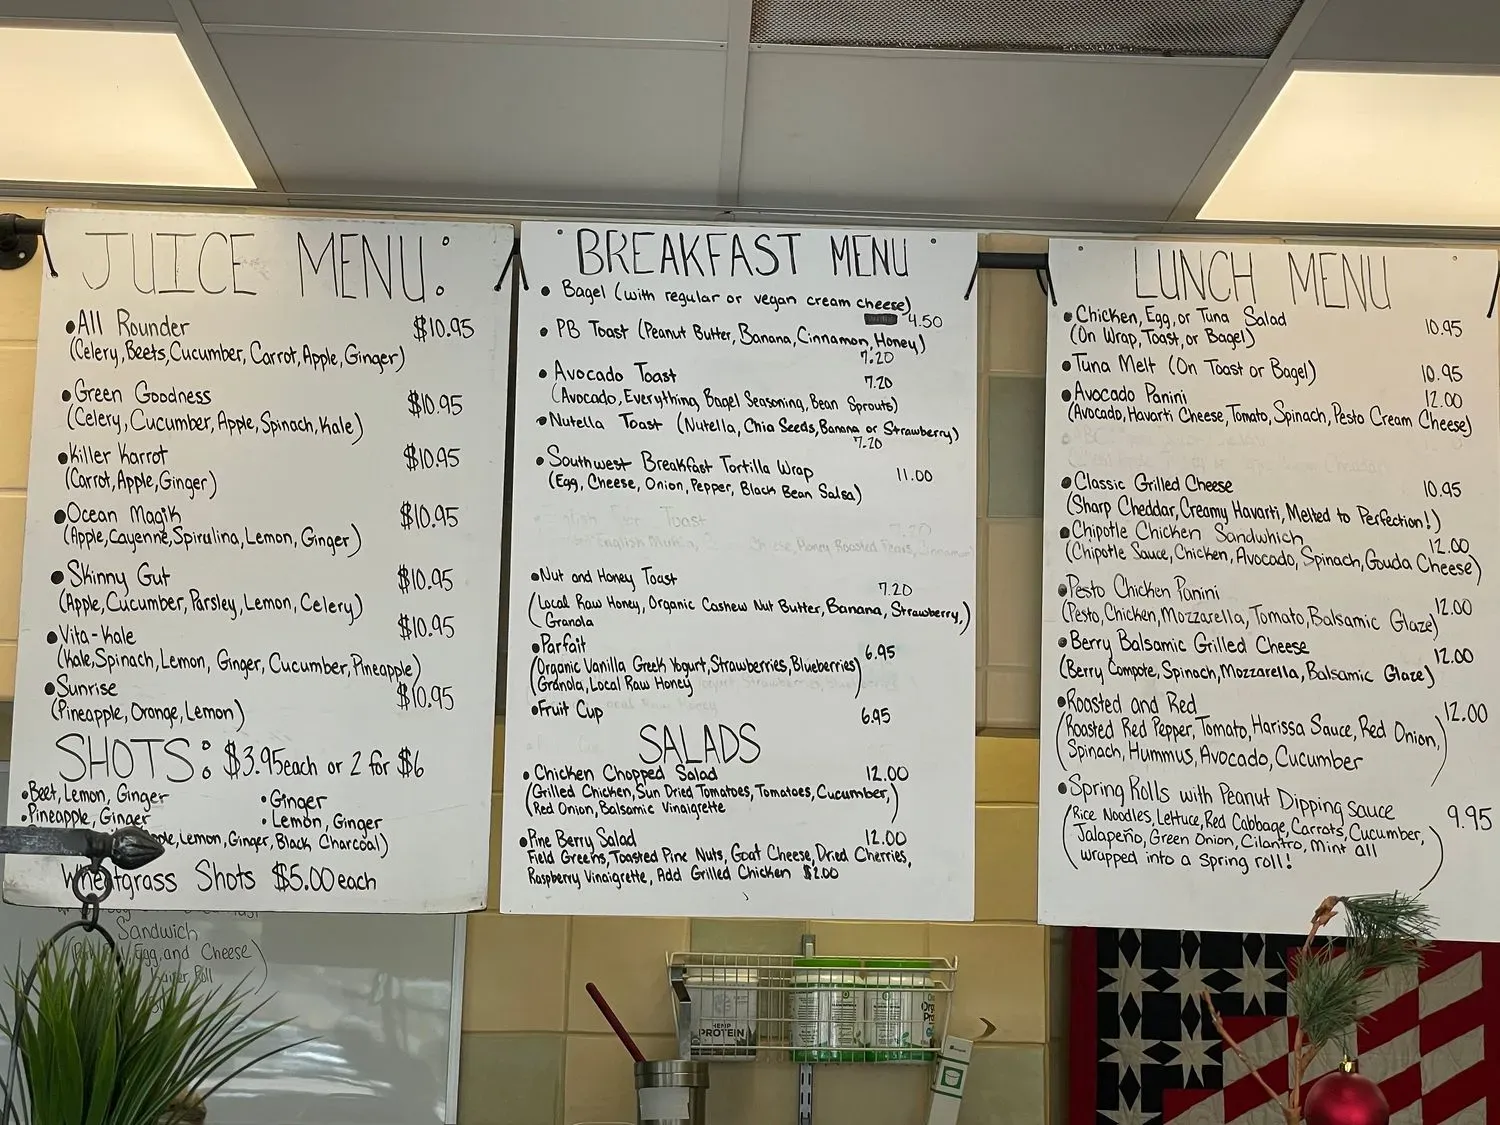 JUICE MENU:
•All Rounder $10.95
(Celery, Beets, Cucumber, Carrot, Apple, Ginger)
•Green Goodness $10.95
(Celery, Cucumber, Apple, Spinach, Kale)
•Killer Karrot $10.95
(Carrot, Apple, Ginger)
•Ocean Magik $10.95
(Apple, Cayenne, Spirulina, Lemon, Ginger)
•Skinny Gut $10.95
(Apple, Cucumber, Parsley, Lemon, Celery)
•Vita-Kale $10.95
(Kale, Spinach, Lemon, Ginger, Cucumber, Pineapple)
•Sunrise $10.95
(Pineapple, Orange, Lemon)
SHOTS: $3.95 each or 2 for $6
•Beet, Lemon, Ginger
•Pineapple, Ginger
•Ginger
•Lemon, Ginger
Lemon, Ginger, Black Charcoal)
Wheatgrass Shots $5.00 each
Sandwich
Egg, and Cheese)
Roll
BREAKFAST MENU
• Bagel (with regular or vegan cream cheese)
4.50
• PB Toast (Peanut Butter, Banana, Cinnamon, Honey)
7.20
• Avocado Toast 7.20
(Avocado, Everything Bagel Seasoning, Bean Sprouts)
•Nutella Toast (Nutella, Chia Seeds, Banana or Strawberry)
7.20
•Southwest Breakfast Tortilla Wrap 11.00
(Egg, Cheese, Onion, Pepper, Black Bean Salsa)
Toast 7.20
Honey Roasted
•Nut and Honey Toast 7.20
(Local Raw Honey, Organic Cashew Nut Butter, Banana, Strawberry,)
Granola
•Parfait 6.95
(Organic Vanilla Greek Yogurt, Strawberries, Blueberries)
Granola, Local Raw Honey
•Fruit Cup 6.95
SALADS
• Chicken Chopped Salad 12.00
(Grilled Chicken, Sun Dried Tomatoes, Tomatoes, Cucumber,)
Red Onion, Balsamic Vinaigrette
•Pine Berry Salad 12.00
Field Greens, Toasted Pine Nuts, Goat Cheese, Dried Cherries,
Raspberry Vinaigrette, Add Grilled Chicken $2.00
LUNCH MENU
•Chicken, Egg, or Tuna Salad 10.95
(On Wrap, Toast, or Bagel)
•Tuna Melt (On Toast or Bagel) 10.95
•Avocado Panini 12.00
(Avocado, Havarti Cheese, Tomato, Spinach, Pesto Cream Cheese)
•Classic Grilled Cheese 10.95
(Sharp Cheddar, Creamy Havarti, Melted to Perfection!)
•Chipotle Chicken Sandwhich 12.00
(Chipotle Sauce, Chicken, Avocado, Spinach, Gouda Cheese)
•Pesto Chicken Panini 12.00
(Pesto, Chicken, Mozzarella, Tomato, Balsamic Glaze)
•Berry Balsamic Grilled Cheese 12.00
(Berry Compote, Spinach, Mozzarella, Balsamic Glaze)
•Roasted and Red 12.00
(Roasted Red Pepper, Tomato, Harissa Sauce, Red Onion,
Spinach, Hummus, Avocado, Cucumber)
•Spring Rolls with Peanut Dipping sauce 9.95
(Rice Noodles, Lettuce, Red Cabbage, Carrots, Cucumber,
Jalapeño, Green Onion, Cilantro, Mint all
wrapped into a spring roll!)
HEMP
PROTEIN